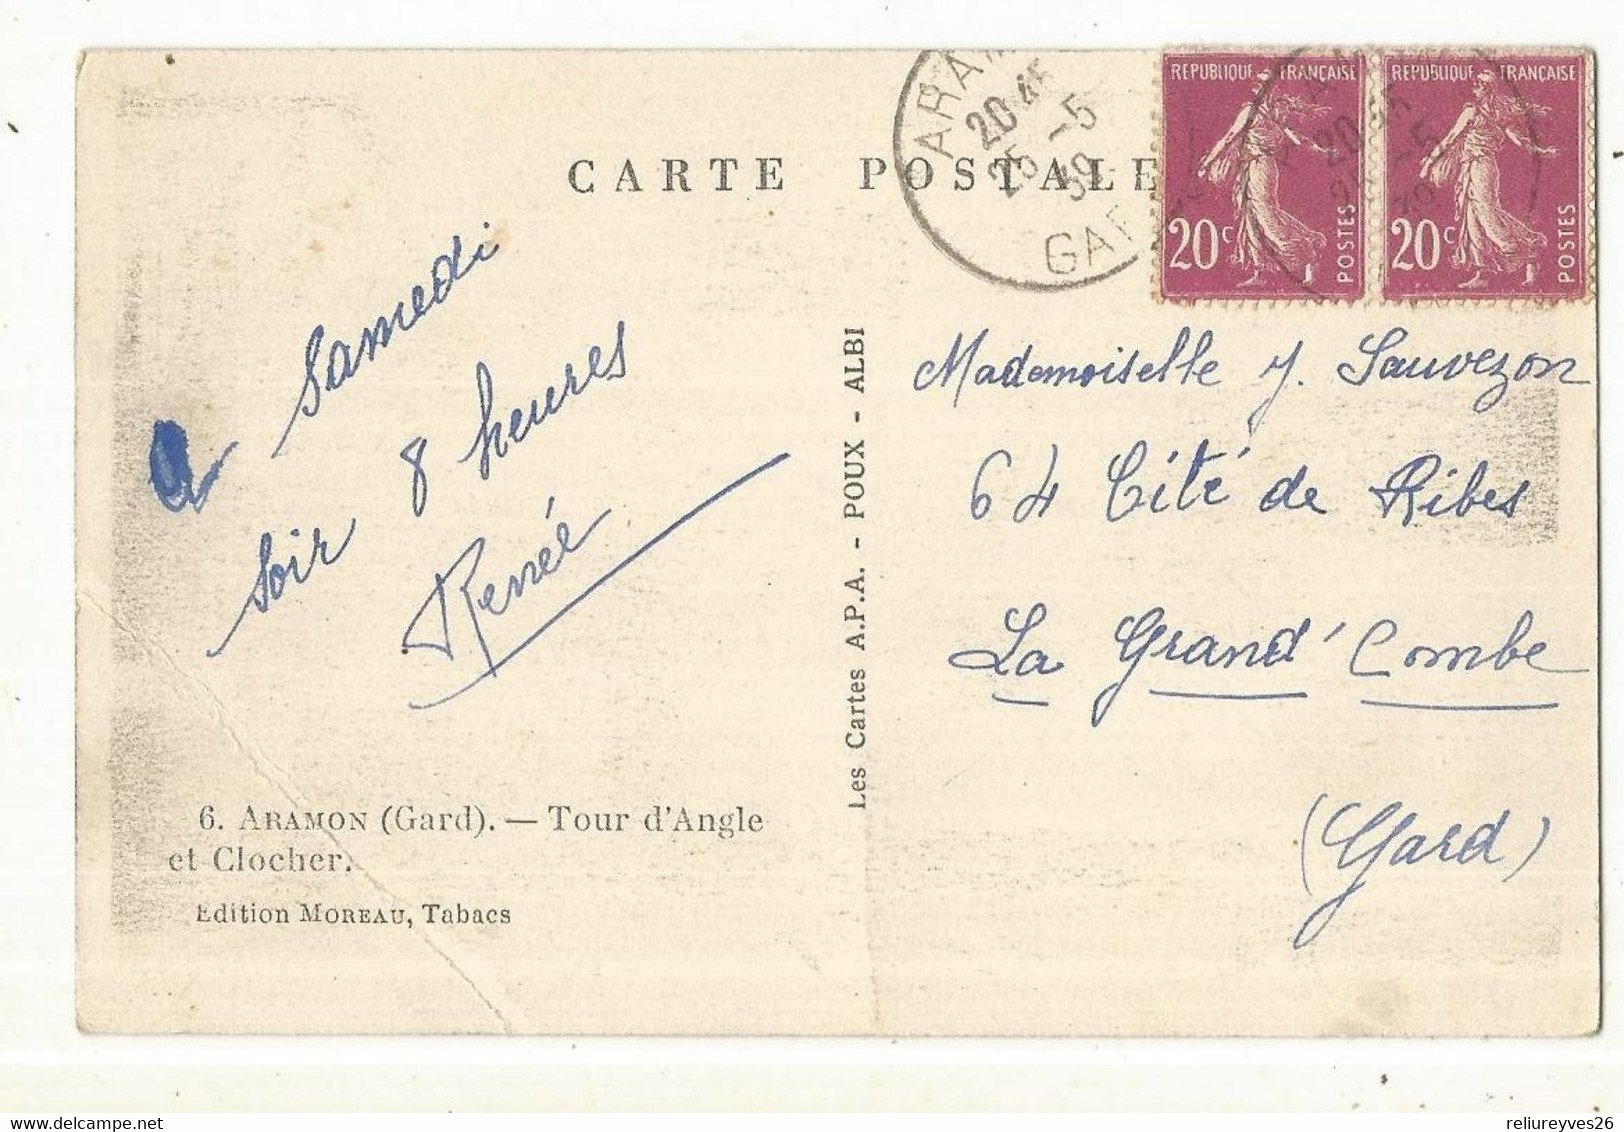 CARTE POSTALE
ARAM
20 45
25 -5
39
GAR
REPUBLIQUE FRANÇAISE
20c
POSTES
REPUBLIQUE FRANÇAISE
20c
POSTES
a Samedi
soir 8 heures
Renée
6. ARAMON (Gard). — Tour d'Angle
et Clocher.
Edition MOREAU, Tabacs
Les Cartes A.P.A. - POUX - ALBI
Mademoiselle Y. Sauvezon
64 Cité de Ribes
La Grand' Combe
(Gard)
reliureyves26